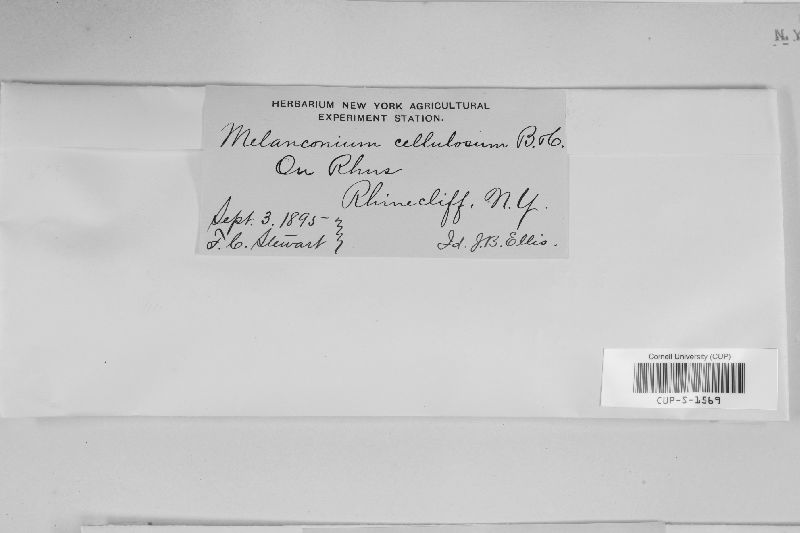 N. Y
HERBARIUM NEW YORK AGRICULTURAL
EXPERIMENT STATION.
Melanconium cellulosum B. & C.
On Rhus
Rhinecliff, N.Y.
Sept. 3, 1895
F. C. Stewart
Id. J.B. Ellis.
Cornell University (CUP)
CUP-S-1569